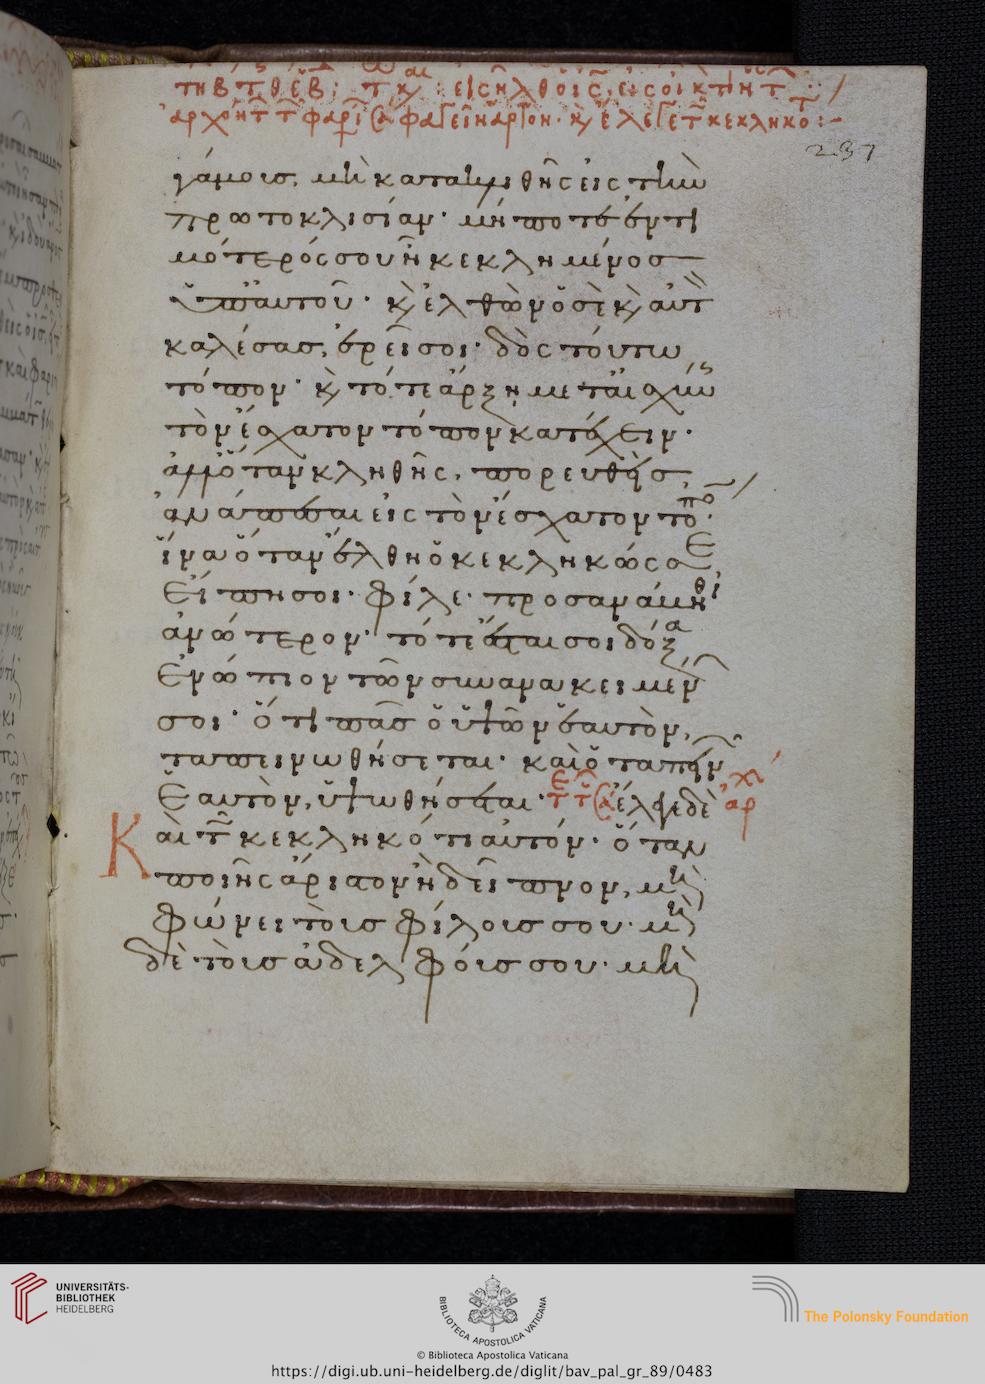 τη β τ θ εβ: τ κ: εἰσῆλθεν ὁ ἰς εἰς οἰκ τιν τ
ἀρχόντ τ φαρι φαγεῖν ἄρτον· κ ἔλεγε τ κεκληκοτ:-
237
γάμους, μὴ κατακλιθῆς εἰς τὴν
πρωτοκλισίαν· μήποτε ἐντι
μότερός σου ἦ κεκλημένος
ὑπ αὐτοῦ· κ ἐλθὼν ὁ σὲ κ αὐτ
καλέσας, ἐρεῖ σοι· δὸς τούτω
τόπον· κ τότε ἄρξη μετ αἰσχύν
τὸν ἔσχατον τόπον κατέχειν·
ἀλλ ὅταν κληθῆς, πορευθεὶς,
ἀνάπεσαι εἰς τὸν ἔσχατον τόπο·
ἵνα ὅταν ἔλθη ὁ κεκληκώς σε,
εἴπη σοι· φίλε· προσανάβηθι
ἀνώτερον· τότε ἔσται σοι δόξα
ἐνώπιον τῶν συνανακειμέν
σοι· ὅτι πᾶς ὁ ὑψῶν ἑαυτὸν,
ταπεινωθήσεται· καὶ ὁ ταπειν
ἑαυτὸν, ὑψωθήσεται· ἔλεγε δὲ ἀρχ
Καὶ τ κεκληκότι αὐτόν· ὅταν
ποιῆς ἄριστον ἢ δεῖπνον, μὴ
φώνει τοὺς φίλους σου· μὴ
δὲ τοὺς ἀδελφούς σου· μὴ
UNIVERSITÄTS-
BIBLIOTHEK
HEIDELBERG
BIBLIOTECA APOSTOLICA VATICANA
The Polonsky Foundation
© Biblioteca Apostolica Vaticana
https://digi.ub.uni-heidelberg.de/diglit/bav_pal_gr_89/0483